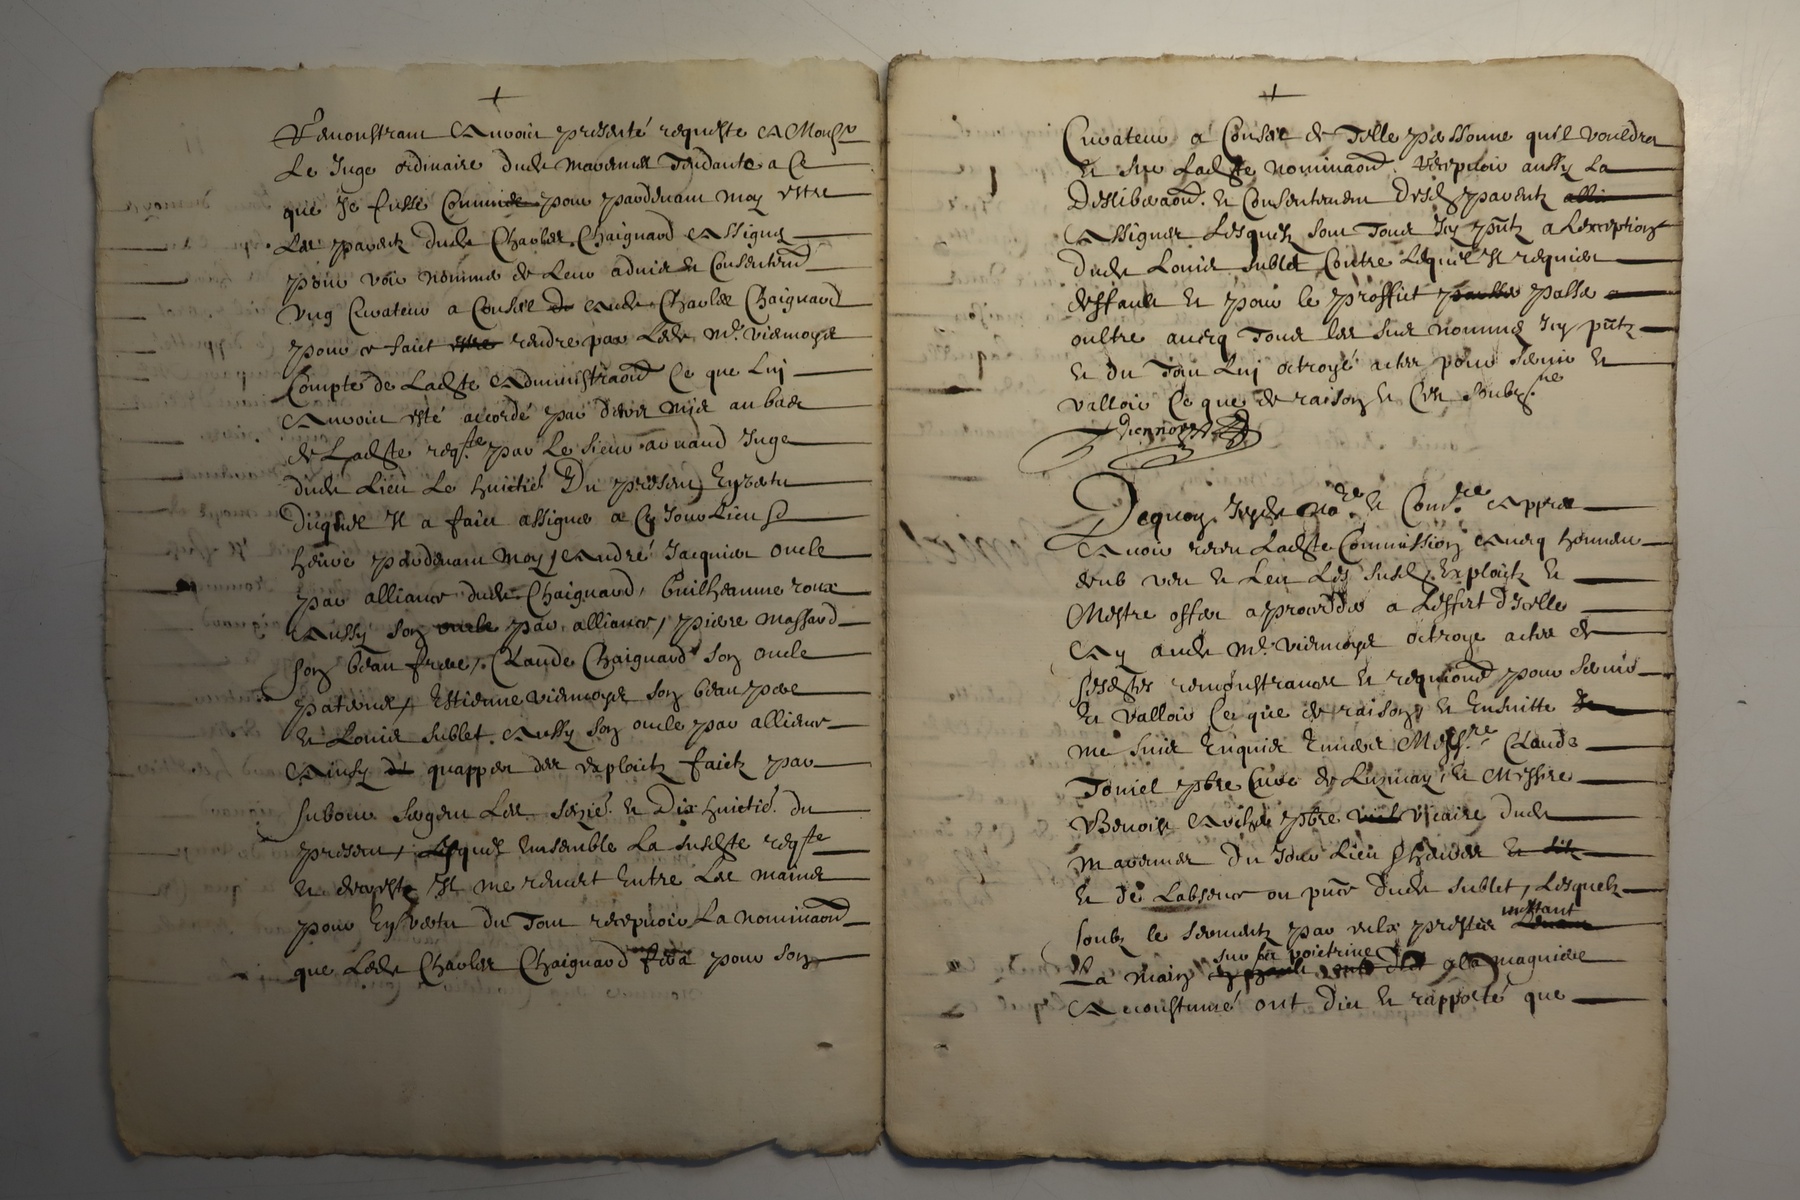 Remonstrant Avvoir presenté requeste A Monsr
Le Juge ordinaire dudt tendante a Ce
que Je fusse Commis pour pardevant moy estre
Les parentz dudt Charles Chaignard Assignes
pour voir nommer de Leur advis et Consentemt
Ung Curateur a Conseil de audt Charles Chaignard
pour ce faict estre rendre par Ledt Mr. Viennoys
Compte de Ladte Administraon Ce que Luy
Avvoir esté accordé par decret mis au bas
de Ladte reqte par Le Sieur arnaud Juge
dudt Lieu Le huictie. Du present En vertu
Duquel Il a faict assigner a Ce Jour Lieu et
heure pardevant moy, André Jacquier oncle
par alliance dudt Chaignard, Guilheaume roux
Aussy Son oncle par alliance, pierre massard
Son beau frere, Claude Chaignard Son oncle
paternel, Estienne viennoys Son beau pere
et Louis Sublet Aussy Son oncle par alliance
Ainsy di quapper des exploictz faictz par
Sergent Les Sezie. et Dix huictie. du
present, Lesquelz Ensemble La Susdte reqte
et decret Il me remect Entre Les mains
pour En vertu du Tout recepvoir La nominaon
que Ledt Charles Chaignard fera pour Son
Curateur a Conseil de Telle personne qu'il vouldra
et Sur Ladte nominaon recepvoir aussy La
Desliberaon et Consentement Desdz parentz alli
Assignes Lesquelz Sont Tous Icy pntz a Lexception
dudt Louis Sublet Contre Lequel Il requiert
deffault et pour le proffict passer passer
oultre avecq Tous les Sus nommes Icy pntz
et du Tout Luy octroyé actes pour Servir et
valloir Ce que de raison et C'est Soubzsne
Viennoys
Dequoy Nore et Comre Appres
Avoir receu Ladte Commission Avecq honneur
deub veu et Leu Les Susdz Exploictz et
Mestre offert a proceddes a Leffect d'Icelle
Ay audt Mr. viennoys octroye actes de
Sesdtes remonstrances et requisions pour Servir
et valloir Ce que de raison, et Ensuitte de
me Suis Enquis Envers Messre Claude
Toniel pbre Curé de Luzinay et Messire
Benoist pbre vicaire dudt
Du Jour Lieu heures et
et de Labsence ou pnce dudt Sublet, Lesquelz
Soubz le Serment par eulx prester mettant
La main Sur La poictrine a la magniere
Acoustumé ont Dict et rapporté que